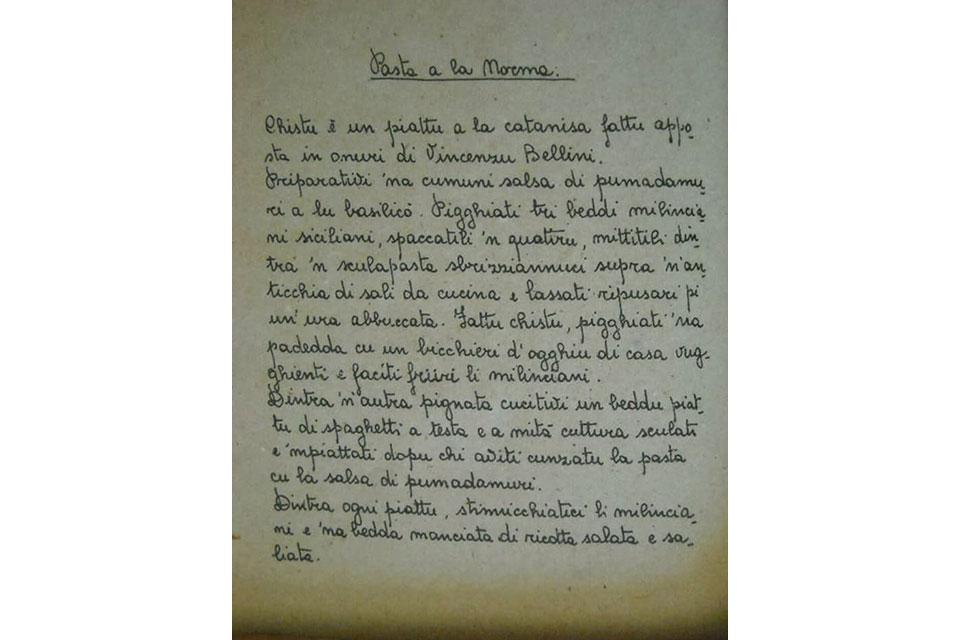 Pasta a la Norma.
Chistu è un piattu a la catanisa fattu appo-
sta in onuri di Vincenzu Bellini.
Priparativi 'na cumuni salsa di pumadamu-
ri a lu basilicò. Pigghiati tri beddi milincia-
ni siciliani, spaccatili 'n quattru, mittitili din-
tra 'n sculapasta sbrizziannuci supra 'n'an-
ticchia di sali da cucina e lassati ripusari pi
un'ura abbuccata. Fattu chistu, pigghiati 'na
padedda cu un bicchieri d'ogghiu di casa vug-
ghienti e faciti friiri li milinciani.
Dintra 'n'autra pignata cucitivi un beddu piat-
tu di spaghetti a testa e a mità cuttura sculati
e 'mpiattati dopu chi aviti cunzatu la pasta
cu la salsa di pumadamuri.
Dintra ogni piattu, stinnicchiatici li milincia-
ni e 'na bedda manciata di ricotta salata e sa-
liata.